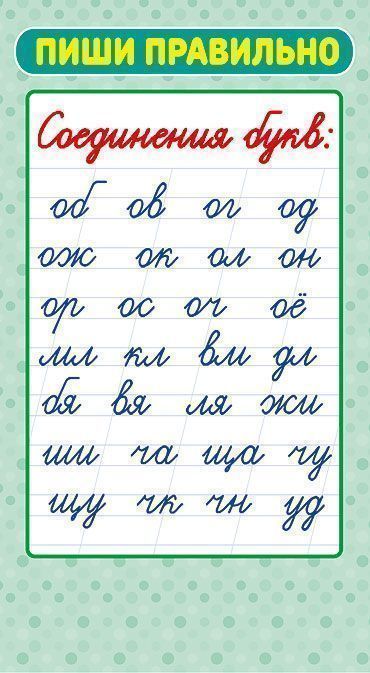 ПИШИ ПРАВИЛЬНО
Соединения букв:
об ов ог од
ож ок ол он
ор ос оч оё
мл кл вм дл
бя вя ля жи
ши ча ща чу
щу чк чн уд